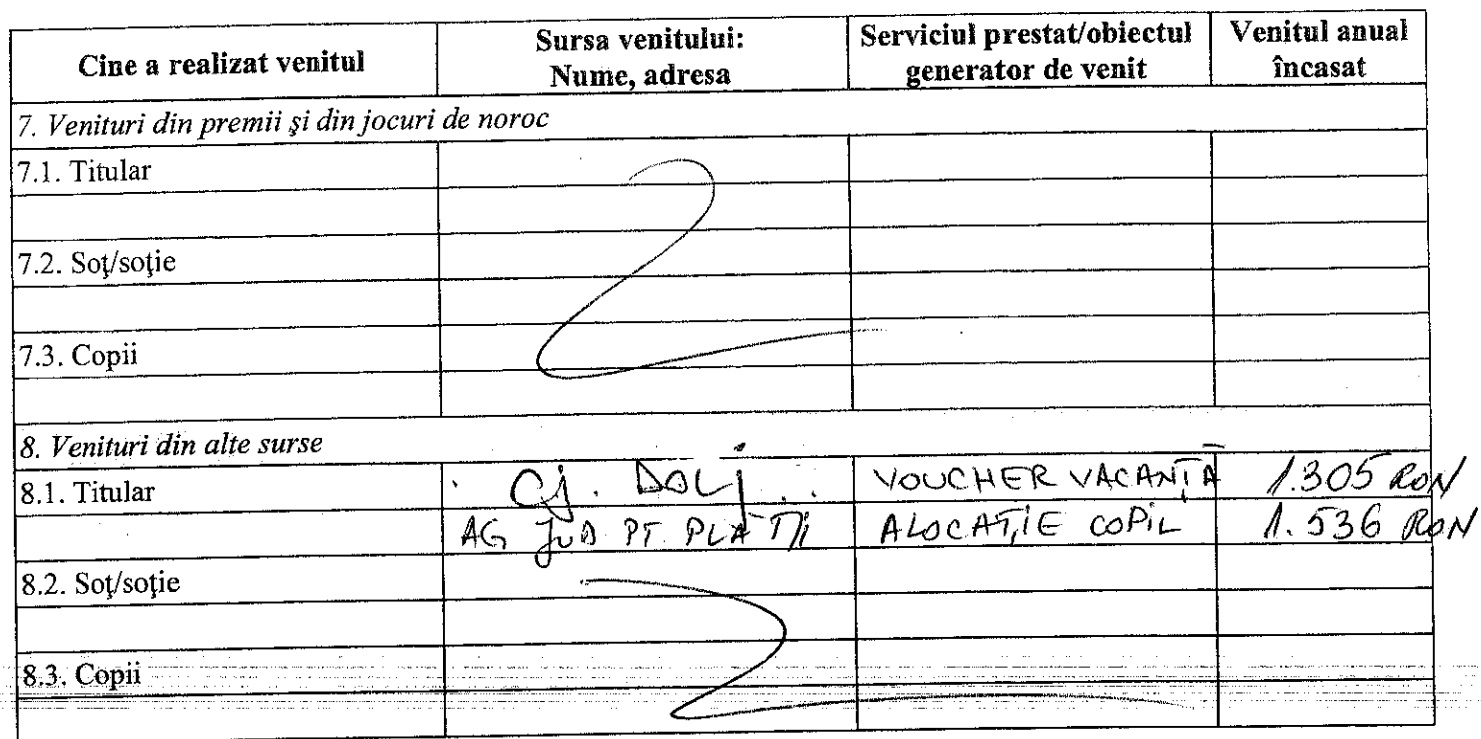 Cine a realizat venitul Sursa venitului: Nume, adresa Serviciul prestat/obiectul generator de venit Venitul anual încasat
7. Venituri din premii şi din jocuri de noroc
7.1. Titular
7.2. Soţ/soţie
7.3. Copii
8. Venituri din alte surse
8.1. Titular CJ. DOLJ VOUCHER VACANȚĂ 1.305 RON
AG JUD PT. PLĂȚI ALOCAȚIE COPIL 1.536 RON
8.2. Soţ/soţie
8.3. Copii